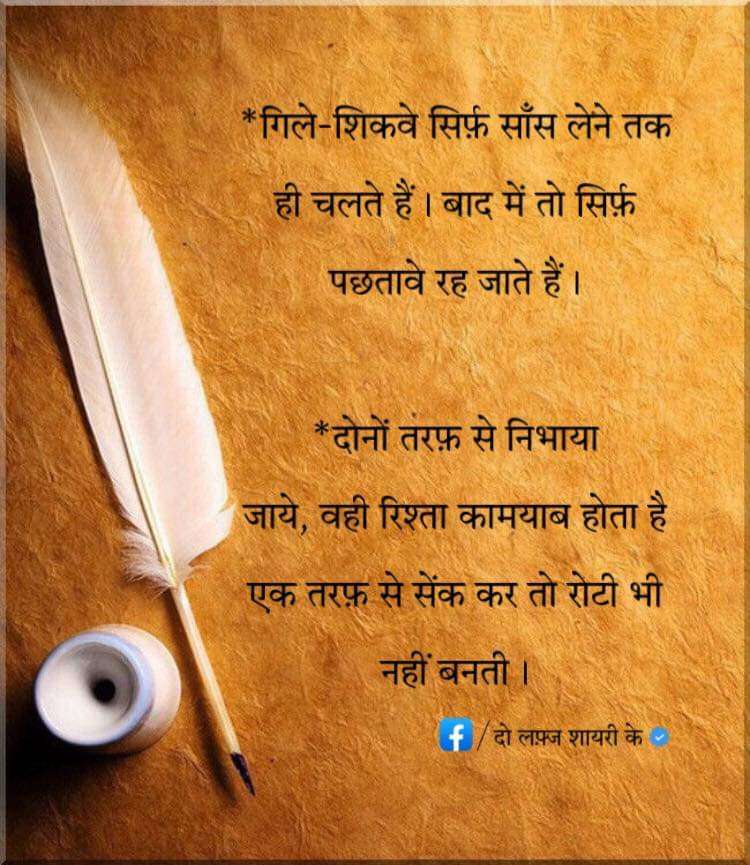 *गिले-शिकवे सिर्फ़ साँस लेने तक
ही चलते हैं। बाद में तो सिर्फ़
पछतावे रह जाते हैं।
*दोनों तरफ़ से निभाया
जाये, वही रिश्ता कामयाब होता है
एक तरफ़ से सेंक कर तो रोटी भी
नहीं बनती।
/ दो लफ़्ज शायरी के